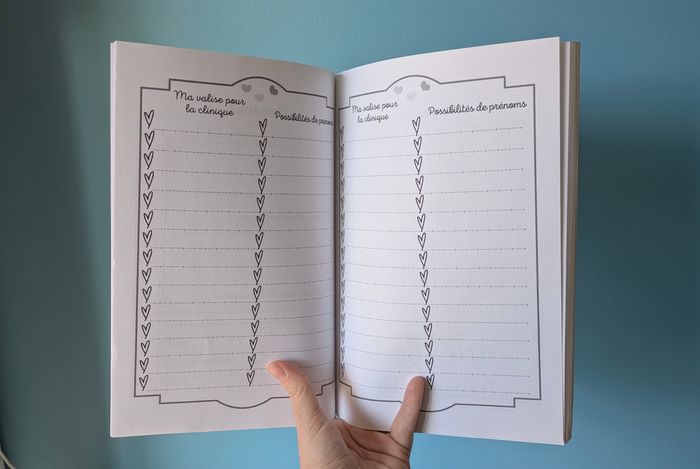 Ma valise pour
la clinique
Possibilités de prénoms
Ma valise pour
la clinique
Possibilités de prénoms